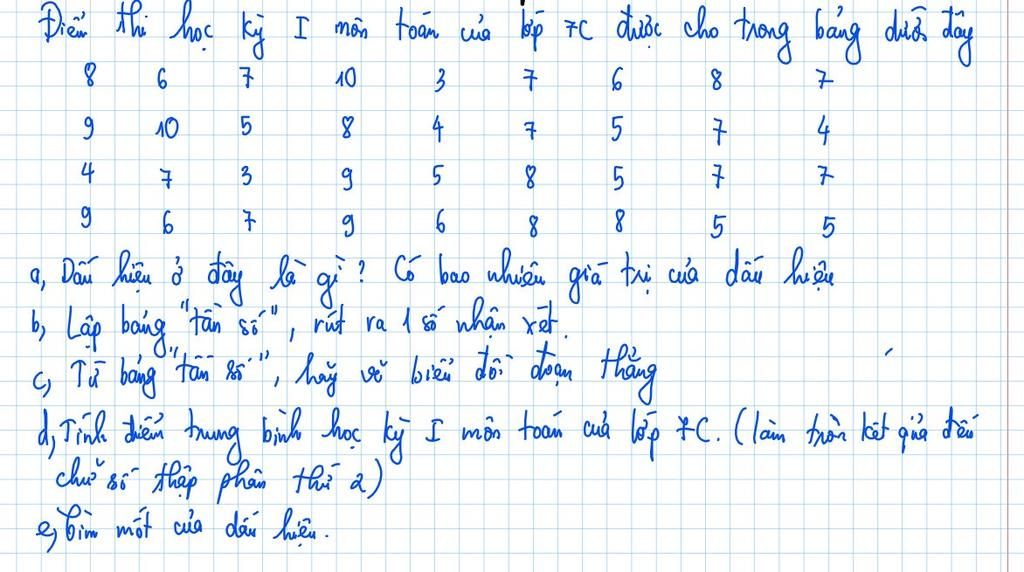 Điểm thi học kỳ I môn toán của lớp 7C được cho trong bảng dưới đây
8 6 7 10 3 7 6 8 7
9 10 5 8 4 7 5 7 4
4 7 3 9 5 8 5 7 7
9 6 7 9 6 8 8 5 5
a, Dấu hiệu ở đây là gì? Có bao nhiêu giá trị của dấu hiệu
b, Lập bảng "tần số", rút ra 1 số nhận xét.
c, Từ bảng "tần số", hãy vẽ biểu đồ đoạn thẳng
d, Tính điểm trung bình học kỳ I môn toán của lớp 7C. (làm tròn kết quả đến
chữ số thập phân thứ 2)
e, Tìm mốt của dấu hiệu.